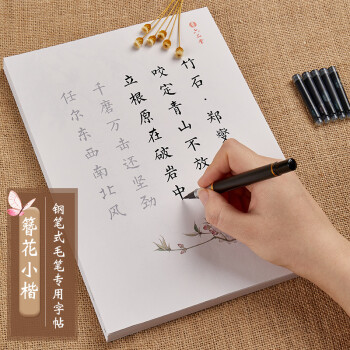 竹石·郑燮
咬定青山不放
立根原在破岩中
千磨万击还坚劲
任尔东西南北风
簪花小楷
钢笔式毛笔专用字帖